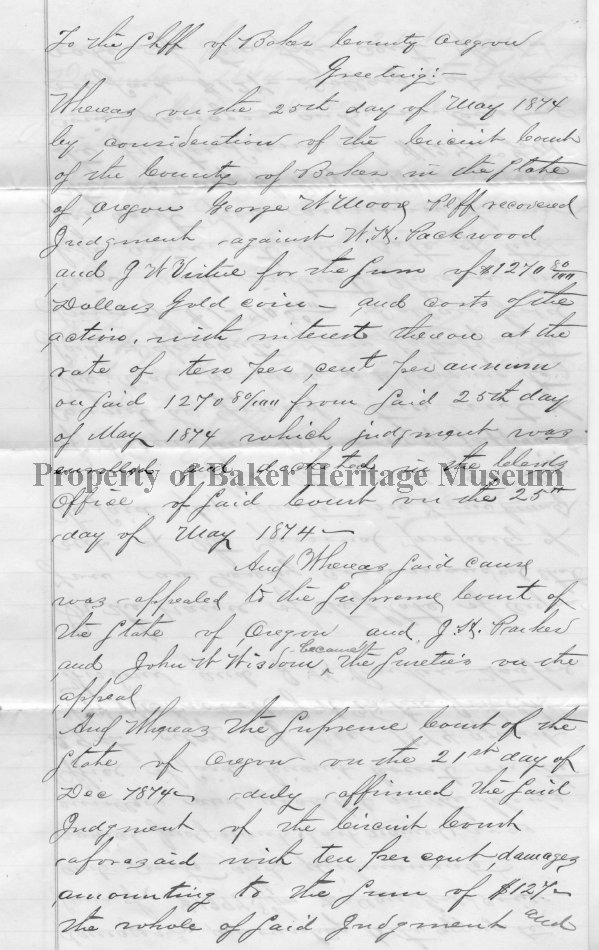 To the Shff of Baker County Oregon
Greeting:—
Whereas on the 25th day of May 1874
by consideration of the Circuit Court
of the County of Baker in the State
of Oregon George W Moore Plff recovered
Judgment against W.H. Packwood
and J W Virtue for the Sum of $1270 80/100
Dollars Gold coin — and costs of the
action, with interest thereon at the
rate of ten per cent per annum
on Said 1270 80/100 from Said 25th day
of May 1874 which judgment was
enrolled and docketed in the Clerks
Property of Baker Heritage Museum
Office of Said Court on the 25th
day of May 1874—
And Whereas Said cause
was appealed to the Supreme Court of
the State of Oregon and J. H. Parker
and John W Wisdom became the Sureties on the
appeal
And Whereas the Supreme Court of the
State of Oregon on the 21st day of
Dec 1874 duly affirmed the Said
Judgment of the Circuit Court
aforesaid with ten per cent damages
amounting to the Sum of $127—
the whole of Said Judgment and